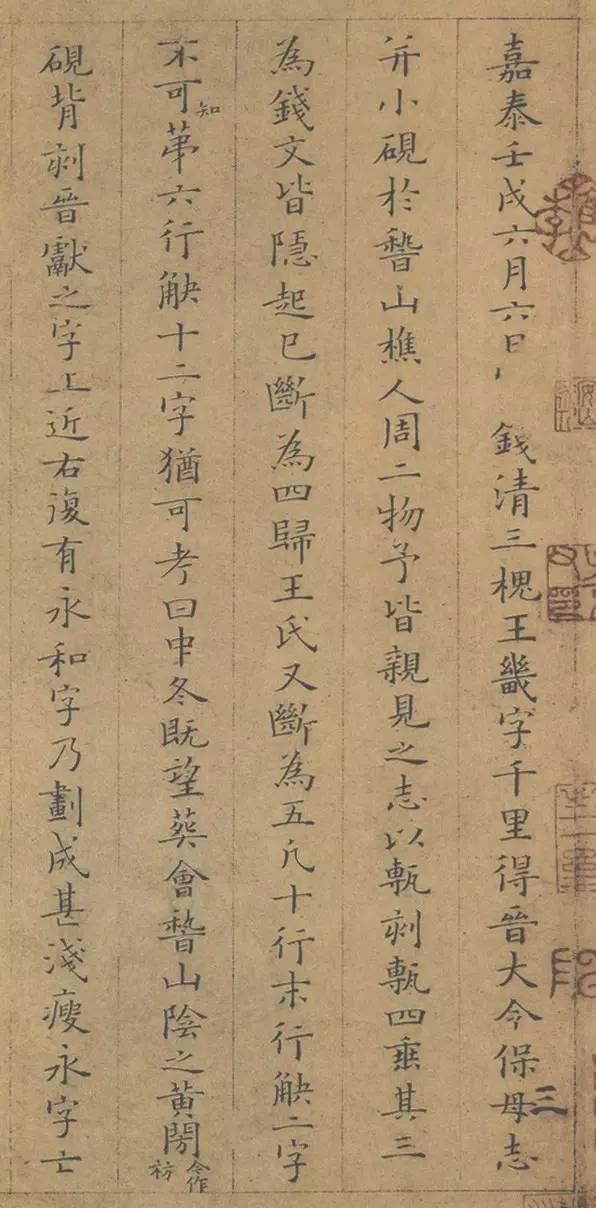 嘉泰壬戌六月六日錢清三槐王畿字千里得晉大令保母志
并小硯於稽山樵人周二物予皆親見之志以甎刻甎四垂其三
為錢文皆隱起已斷為四歸王氏又斷為五凡十行末行觖二字
不可知苐六行觖十二字猶可考曰中冬既望葬會稽山陰之黃閍
令作祊
硯背刻晉獻之字上近右復有永和字乃劃成甚淺瘦永字亡
三